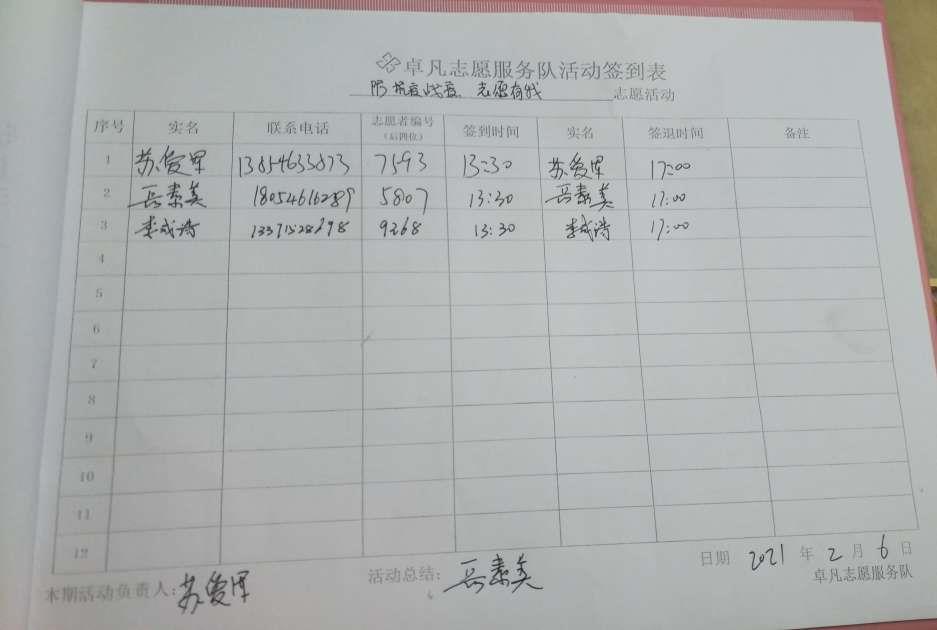 卓凡志愿服务队活动签到表
志愿有我 志愿活动
序号 实名 联系电话 志愿者编号（后四位） 签到时间 实名 签退时间 备注
1 苏爱军 13854633873 7593 13:30 苏爱军 17:00
2 岳素美 18054616289 5807 13:30 岳素美 17:00
3 李成涛 9268 13:30 李成涛 17:00
4
5
6
7
8
9
10
11
12
日期 2021 年 2 月 6 日
本期活动负责人: 苏爱军 活动总结: 岳素美
卓凡志愿服务队